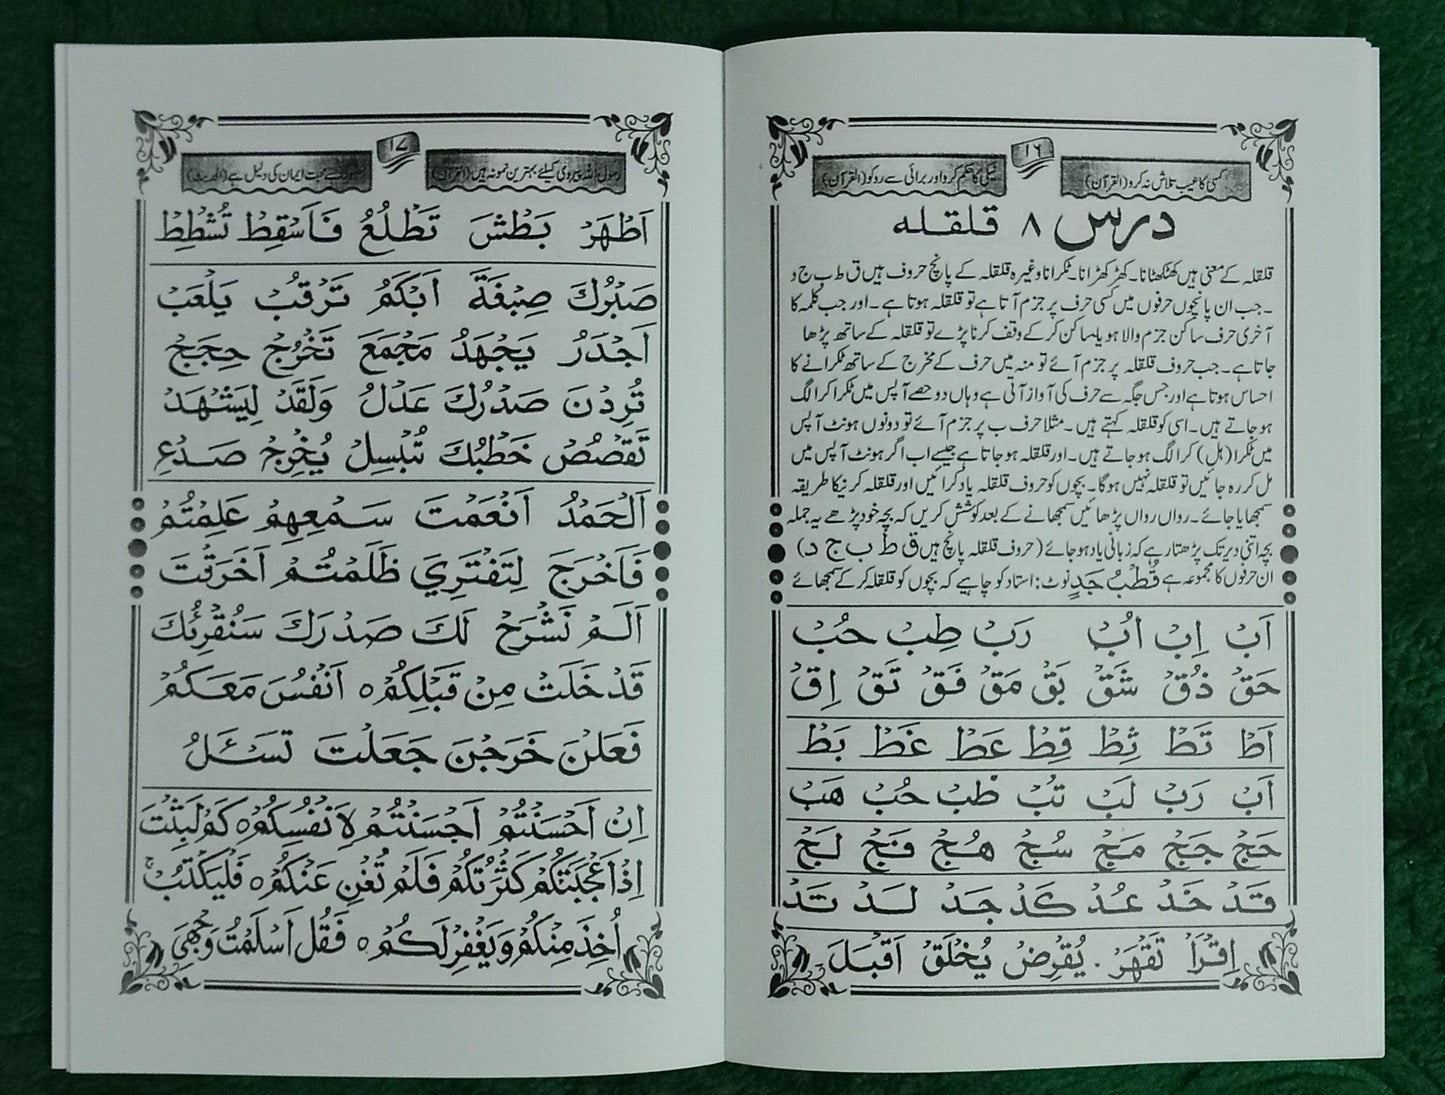 ۱۶
کسی کا عیب تلاش نہ کرو (القرآن)
نیکی کا حکم کرو اور برائی سے روکو (القرآن)
درس ۸ قلقلہ
قلقلہ کے معنی ہیں کھٹکھٹانا۔ کھڑ کھڑانا۔ ٹکرانا وغیرہ قلقلہ کے پانچ حروف ہیں ق ط ب ج د
۔ جب ان پانچوں حرفوں میں کسی حرف پر جزم آتا ہے تو قلقلہ ہوتا ہے۔ اور جب کلمہ کا
آخری حرف ساکن جزم والا ہو یا ساکن کر کے وقف کرنا پڑے تو قلقلہ کے ساتھ پڑھا
جاتا ہے۔ جب حروف قلقلہ پر جزم آئے تو منہ میں حرف کے مخرج کے ساتھ ٹکرانے کا
احساس ہوتا ہے اور جس جگہ سے حرف کی آواز آتی ہے وہاں دو حصے آپس میں ٹکرا کر الگ
ہو جاتے ہیں۔ اسی کو قلقلہ کہتے ہیں۔ مثلا حرف ب پر جزم آئے تو دونوں ہونٹ آپس
میں ٹکرا (ہل) کر الگ ہو جاتے ہیں۔ اور قلقلہ ہو جاتا ہے جیسے اب اگر ہونٹ آپس میں
مل کر رہ جائیں تو قلقلہ نہیں ہوگا۔ بچوں کو حروف قلقلہ یاد کرائیں اور قلقلہ کرنیکا طریقہ
سمجھایا جائے۔ رواں رواں پڑھائیں سمجھانے کے بعد کوشش کریں کہ بچہ خود پڑھے یہ جملہ
بچہ اتنی دیر تک پڑھتا رہے کہ زبانی یاد ہو جائے (حروف قلقلہ پانچ ہیں ق ط ب ج د)
ان حرفوں کا مجموعہ ہے قُطْبُ جَدٍ نوٹ: استاد کو چاہیے کہ بچوں کو قلقلہ کر کے سمجھائے
اَبْ اِبْ اُبْ رَبْ طِبْ حُبْ
حَقْ ذُقْ شَقْ بَقْ مَقْ فَقْ تَقْ اِقْ
اَطْ تَطْ ثِطْ قِطْ عَطْ غَطْ بَطْ
اَبْ رَبْ لَبْ تُبْ طَبْ حُبْ هَبْ
حَجْ جَجْ مَجْ سُجْ هُجْ فَجْ لَجْ
قَدْ خَدْ عُدْ كَدْ جَدْ لَدْ تَدْ
اِقْرَاْ تَقْهَرْ۔ يُقْرِضُ يُخْلَقْ اَقْبَلَ
۱۷
رسول اللہ پیروی کیلئے بہترین نمونہ ہیں (القرآن)
محبت ایمان کی دلیل ہے (الحدیث)
اَطْهَرُ بَطْشَ تَطْلُعُ فَاَسْقِطْ تُشْطِطْ
صَبْرُكَ صِبْغَةَ اَبْكَمُ تَرْقُبْ يَلْعَبْ
اَجْدَرُ يَجْهَدُ مَجْمَعَ تَخْرُجْ حِجَجْ
تُرِدْنَ صَدْرُكَ عَدْلُ وَلَقَدْ لِيَشْهَدْ
تَقْصُصْ خَطْبُكَ تُبْسِلْ يُخْرِجْ صَدْعِ
اَلْحَمْدُ اَنْعَمْتَ سَمْعِهِمْ عَلِمْتُمْ
فَاَخْرَجَ لِتَفْتَرِيَ ظَلَمْتُمْ اَخَرَقْتَ
اَلَمْ نَشْرَحْ لَكَ صَدْرَكَ سَنُقْرِئُكَ
قَدْ خَلَتْ مِنْ قَبْلِكُمْ ○ اَنْفُسَ مَعَكُمْ
فَعَلْنَ خَرَجْنَ جَعَلْتَ تَسْـَٔلُ
اِنْ اَحْسَنْتُمْ اَحْسَنْتُمْ لِاَنْفُسِكُمْ ○ كَمْ لَبِثْتَ
اِذْ اَعْجَبَتْكُمْ كَثْرَتُكُمْ فَلَمْ تُغْنِ عَنْكُمْ ○ فَلْيَكْتُبْ ج
اُخِذَ مِنْكُمْ وَيَغْفِرْ لَكُمْ ○ فَقُلْ اَسْلَمْتُ وَجْهِيَ